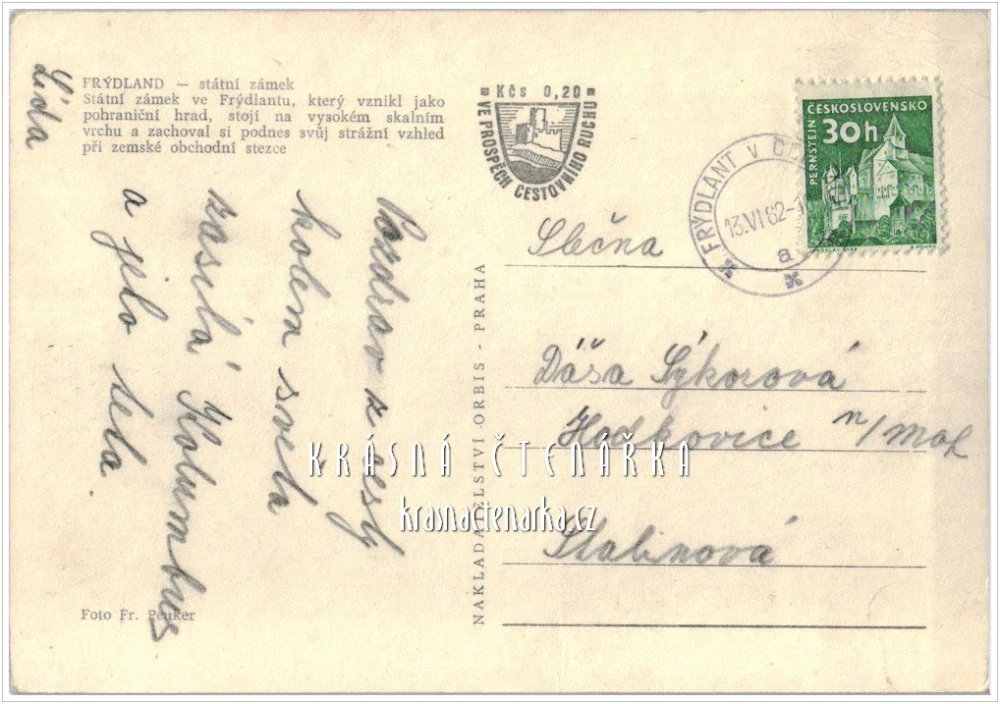 FRÝDLAND — státní zámek
Státní zámek ve Frýdlantu, který vznikl jako
pohraniční hrad, stojí na vysokém skalním
vrchu a zachoval si podnes svůj strážní vzhled
při zemské obchodní stezce
Lída
Pozdrav z cesty
kolem světa
zasílá Kolumbus
a jeho teta
Foto Fr. Peuker
Kčs 0,20
VE PROSPĚCH CESTOVNÍHO RUCHU
NAKLADATELSTVÍ ORBIS - PRAHA
FRÝDLANT V
13.VI 62
a
ČESKOSLOVENSKO
30h
PERNŠTEJN
Slečna
Dáša Sýkorová
Hodkovice n/Moh
Stalinová
KRÁSNÁ ČTENÁŘKA
krasnactenarka.cz